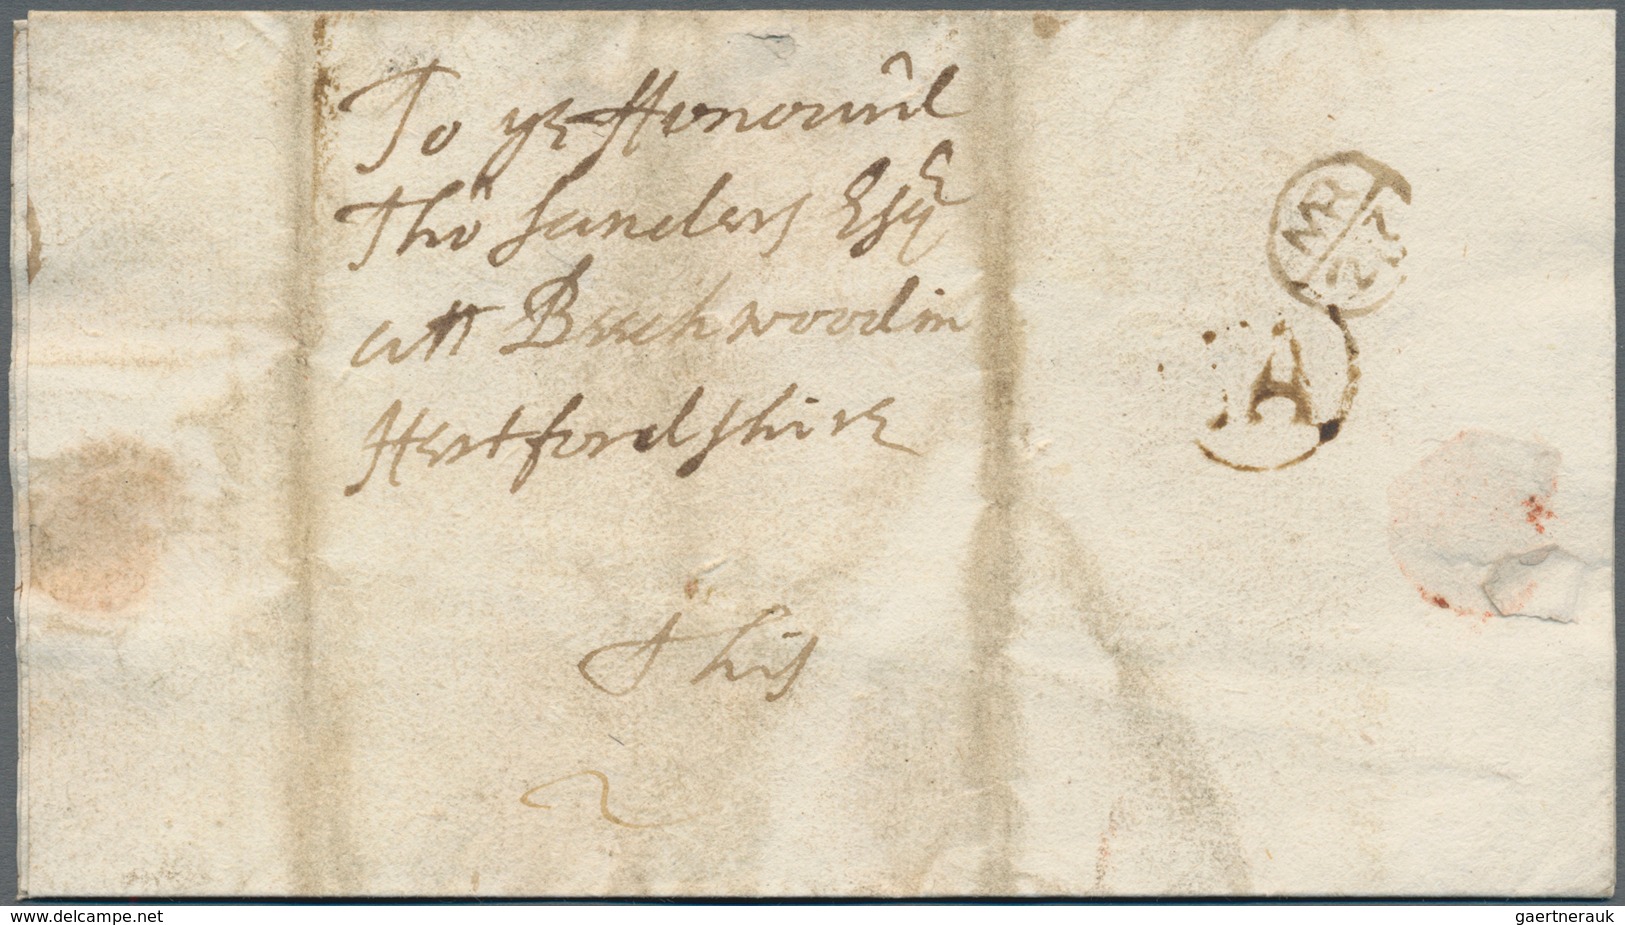 To ye Honour'l
Tho Sanders Esqr
att Beechwood in
Hertfordshire
this
2
MR
27
A
www.delcampe.net
gaertnerauk